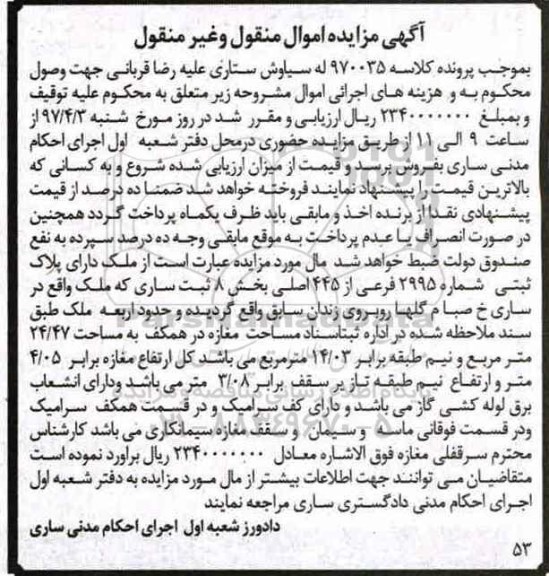 آگهی مزایده اموال منقول وغیر منقول
بموجب پرونده کلاسه ۹۷۰۰۳۵ له سیاوش ستاری علیه رضا قربانی جهت وصول
محکوم به و هزینه های اجرائی اموال مشروحه زیر متعلق به محکوم علیه توقیف
و بمبلغ ۲۳۴۰۰۰۰۰۰۰ ریال ارزیابی و مقرر شد در روز مورخ شنبه ۹۷/۴/۳ از
ساعت ۹ الی ۱۱ از طریق مزایده حضوری در محل دفتر شعبه اول اجرای احکام
مدنی ساری بفروش برسد و قیمت از میزان ارزیابی شده شروع و به کسانی که
بالاترین قیمت را پیشنهاد نمایند فروخته خواهد شد ضمنا ده درصد از قیمت
پیشنهادی نقدا از برنده اخذ و مابقی باید ظرف یکماه پرداخت گردد همچنین
در صورت انصراف یا عدم پرداخت به موقع مابقی وجه ده درصد سپرده به نفع
صندوق دولت ضبط خواهد شد مال مورد مزایده عبارت است از ملک دارای پلاک
ثبتی شماره ۲۹۹۵ فرعی از ۴۴۵ اصلی بخش ۸ ثبت ساری که ملک واقع در
ساری خ صبا م گلها روبروی زندان سابق واقع گردیده و حدود اربعه ملک طبق
سند ملاحظه شده در اداره ثبتاسناد مساحت مغازه در همکف به مساحت ۲۴/۴۷
متر مربع و نیم طبقه برابر ۱۴/۰۳ مترمربع می باشد کل ارتفاع مغازه برابر ۴/۰۵
متر و ارتفاع نیم طبقه تا زیر سقف برابر ۳/۰۸ متر می باشد ودارای انشعاب
برق لوله کشی گاز می باشد و دارای کف سرامیک و در قسمت همکف سرامیک
ودر قسمت فوقانی ماسه و سیمان و سقف مغازه سیمانکاری می باشد کارشناس
محترم سرقفلی مغازه فوق الاشاره معادل ۲۳۴۰۰۰۰۰۰۰ ریال براورد نموده است
متقاضیان می توانند جهت اطلاعات بیشتر از مال مورد مزایده به دفتر شعبه اول
اجرای احکام مدنی دادگستری ساری مراجعه نمایند
دادورز شعبه اول اجرای احکام مدنی ساری
۵۳